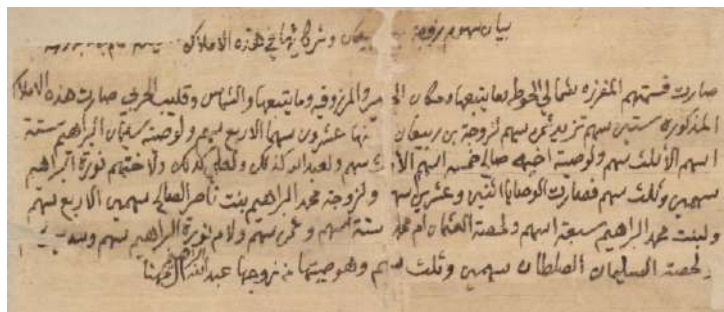 بيان سهوم زوجة ريعان وشركائها في هذه الاملاك
صارت قسمتهم المفرزه شمالي الحوطه بما يتبعها ومكان والمرزوقيه وما يتبعها والشماس وقليب الحربي صارت هذه الاملاك
المذكوره ستين سهم تزيد ثمن سهم لزوجة بن ريعان منها عشرون سهما الا ربع سهم ولوصيته سليمان البراهيم ستة
اسهم الا ثلث سهم ولوصيته اخيه صالح خمسة اسهم الا ثلث سهم ولعبدالله كذلك ولعلي كذلك ولاختهم نورة البراهيم
سهمين وثلث سهم فصارت الوصايا اثنين وعشرين سهم ولزوجة محمد البراهيم بنت ناصر الصالح سهمين الا ربع سهم
ولبنت محمد البراهيم سبعة اسهم ولحصة العثمان ام محمد ستة اسهم وثمن سهم ولام نورة البراهيم سهم
لحصه السليمان السلطان سهمين وثلث سهم وهو وصيتها من زوجها عبدالله البراهيم